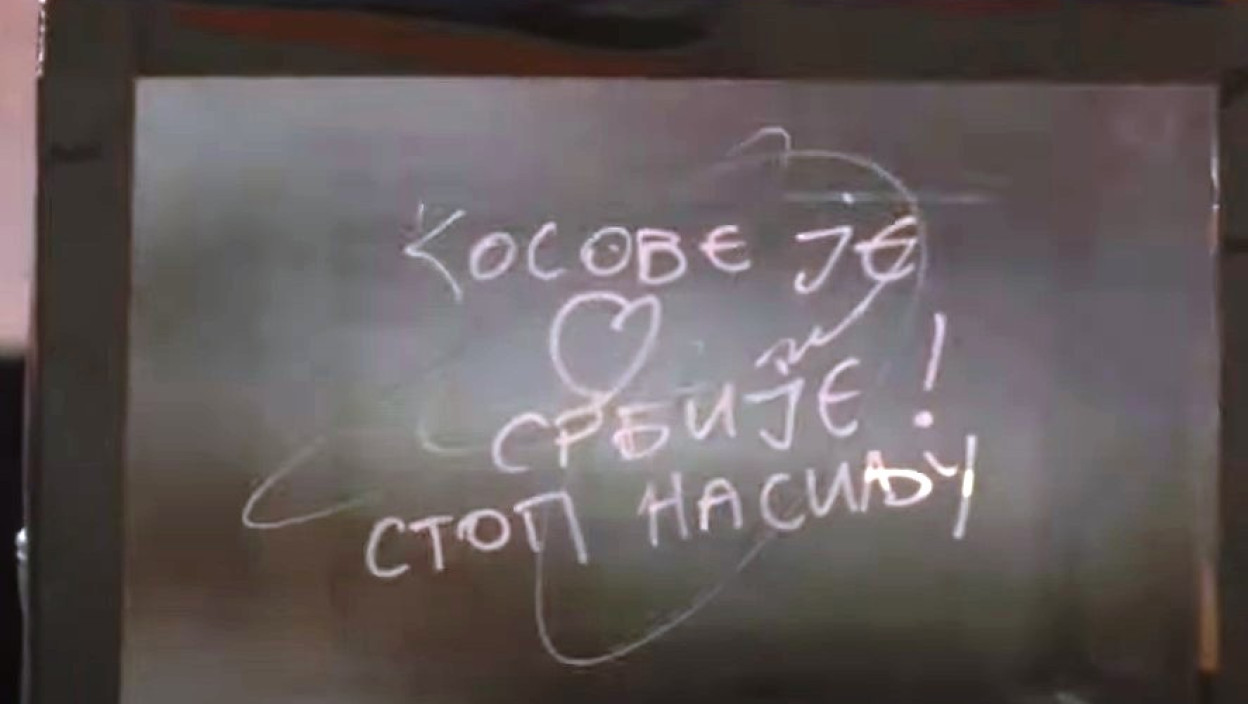 КОСОВЕ ЈЕ
СРБИЈЕ !
СТОП НАСИЉУ